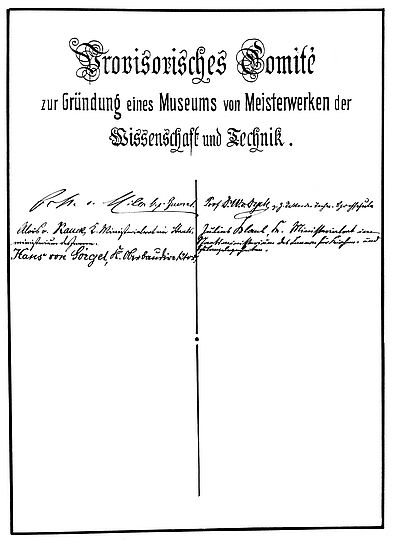 Provisorisches Comité
zur Gründung eines Museums von Meisterwerken der
Wissenschaft und Technik.
v. Miller
Alois v. Rauck, k. Ministerialrat im
ministerium
Hans von Görgel, K. Oberbaudirektor
Prof. Dr.
Julius Blaul, K. Ministerialrat im
Staatsministerium des Innern für Kirchen- und
Schulangelegenheiten.